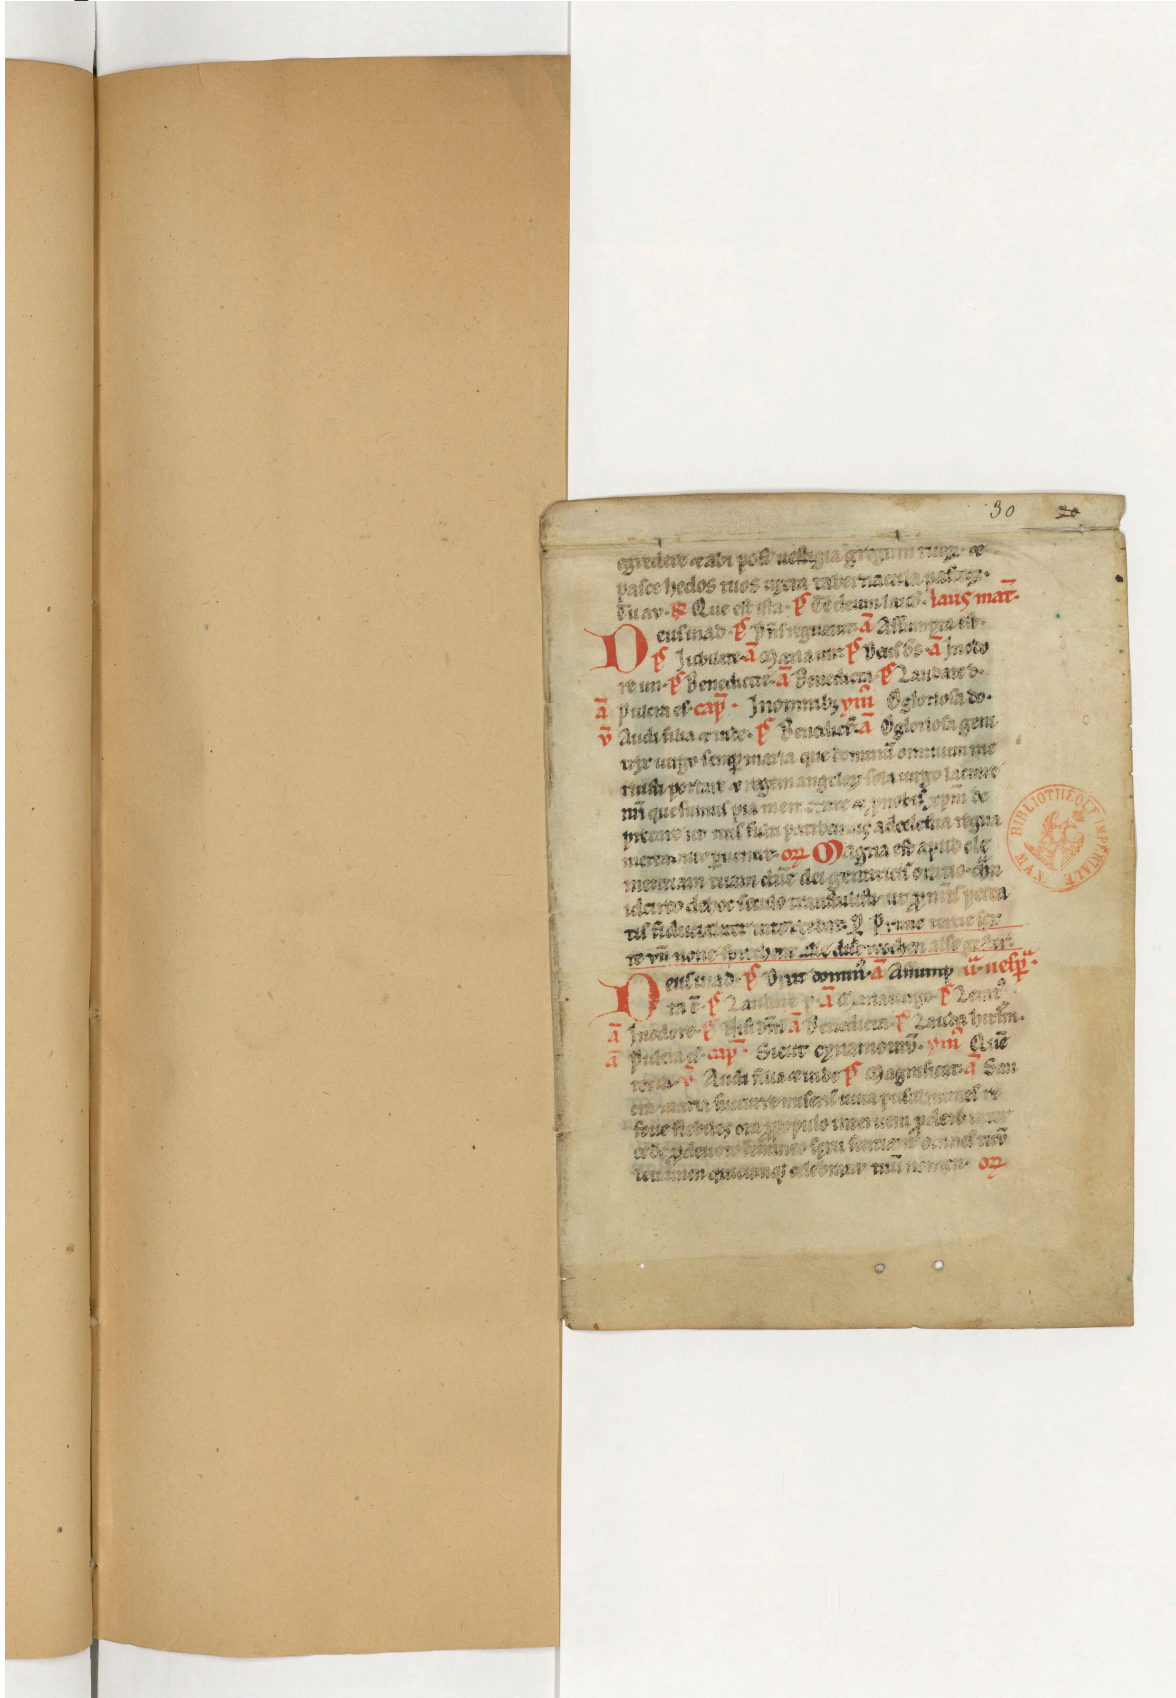 30 20
egredere et abi post uestigia gregum tuoꝝ· et
pasce hedos tuos iuxta tabernacula pastoꝝ·
Tu aū· R̄ Que est ista· p̄s Te deum laud̄· laus mat̄·
Deus in ad· p̄s Dn̄s regnauit· ā Assumpta est·
p̄s Jubilate· ā Maria uir· p̄s Deus ds̄· ā In odo
re un· p̄s Benedicite· ā Benedicta· p̄s Laudate d·
ā Pulcra es· cap̄· In omnibꝫ ym̄ O gloriosa do·
v̄ Audi filia et uide· p̄s Benedict̄· ā O gloriosa geni
trix uirgo semꝑ maria que dominū omnium me
ruisti portare et regem angeloꝝ sola uirgo lactare
nr̄i quesumus pia memorare et ꝓ nobis xp̄m de
precare ut tuis fulti patrocinijs ad celestia regna
mereamur ꝑuenire· oꝝ Magna est apud cle
mentiam tuam dn̄e dei genitricis oratio· quā
idcirco de hoc seculo transtulisti ut ꝓ nr̄is pecca
tis fiducialiter intercedat· Prime tercie sex
te vn̄ none
Deus in ad· p̄s Dixit domin̄· ā Assump ā· uesꝑ·
ta ē· p̄s Laudate p· ā Maria uirgo· p̄s Letat̄
ā In odore· p̄s Nisi dn̄s ā Benedicta· p̄s Lauda hirlm̄·
ā Pulcra es· cap̄· Sicut cynamomū· ym̄ Quē
terra· v̄ Audi filia et uide p̄s Magnificat· ā San
cta maria succurre miseris iuua pusillanimes re
foue flebiles ora ꝓ populo interueni ꝓ clero inter
cede ꝓ deuoto femineo sexu sentiant omnes tuū
leuamen quicumqꝫ celebrant tuū nomen· oꝝ
BIBLIOTHÈQUE IMPÉRIALE MAN.